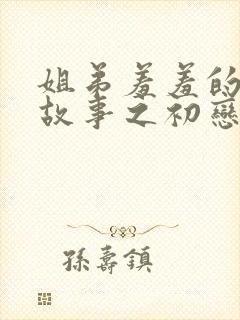 姐弟羞羞的
故事之初戀
孫壽鎮